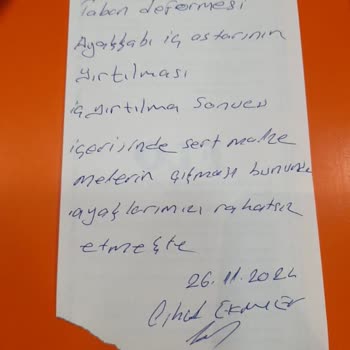 Taban deformesi
Ayakkabı iç astarının
yırtılması
iç yırtılma sonucu
içerisinde sert malze
melerin çıkması bununda
ayaklarımızı rahatsız
etmekte
26.11.2024